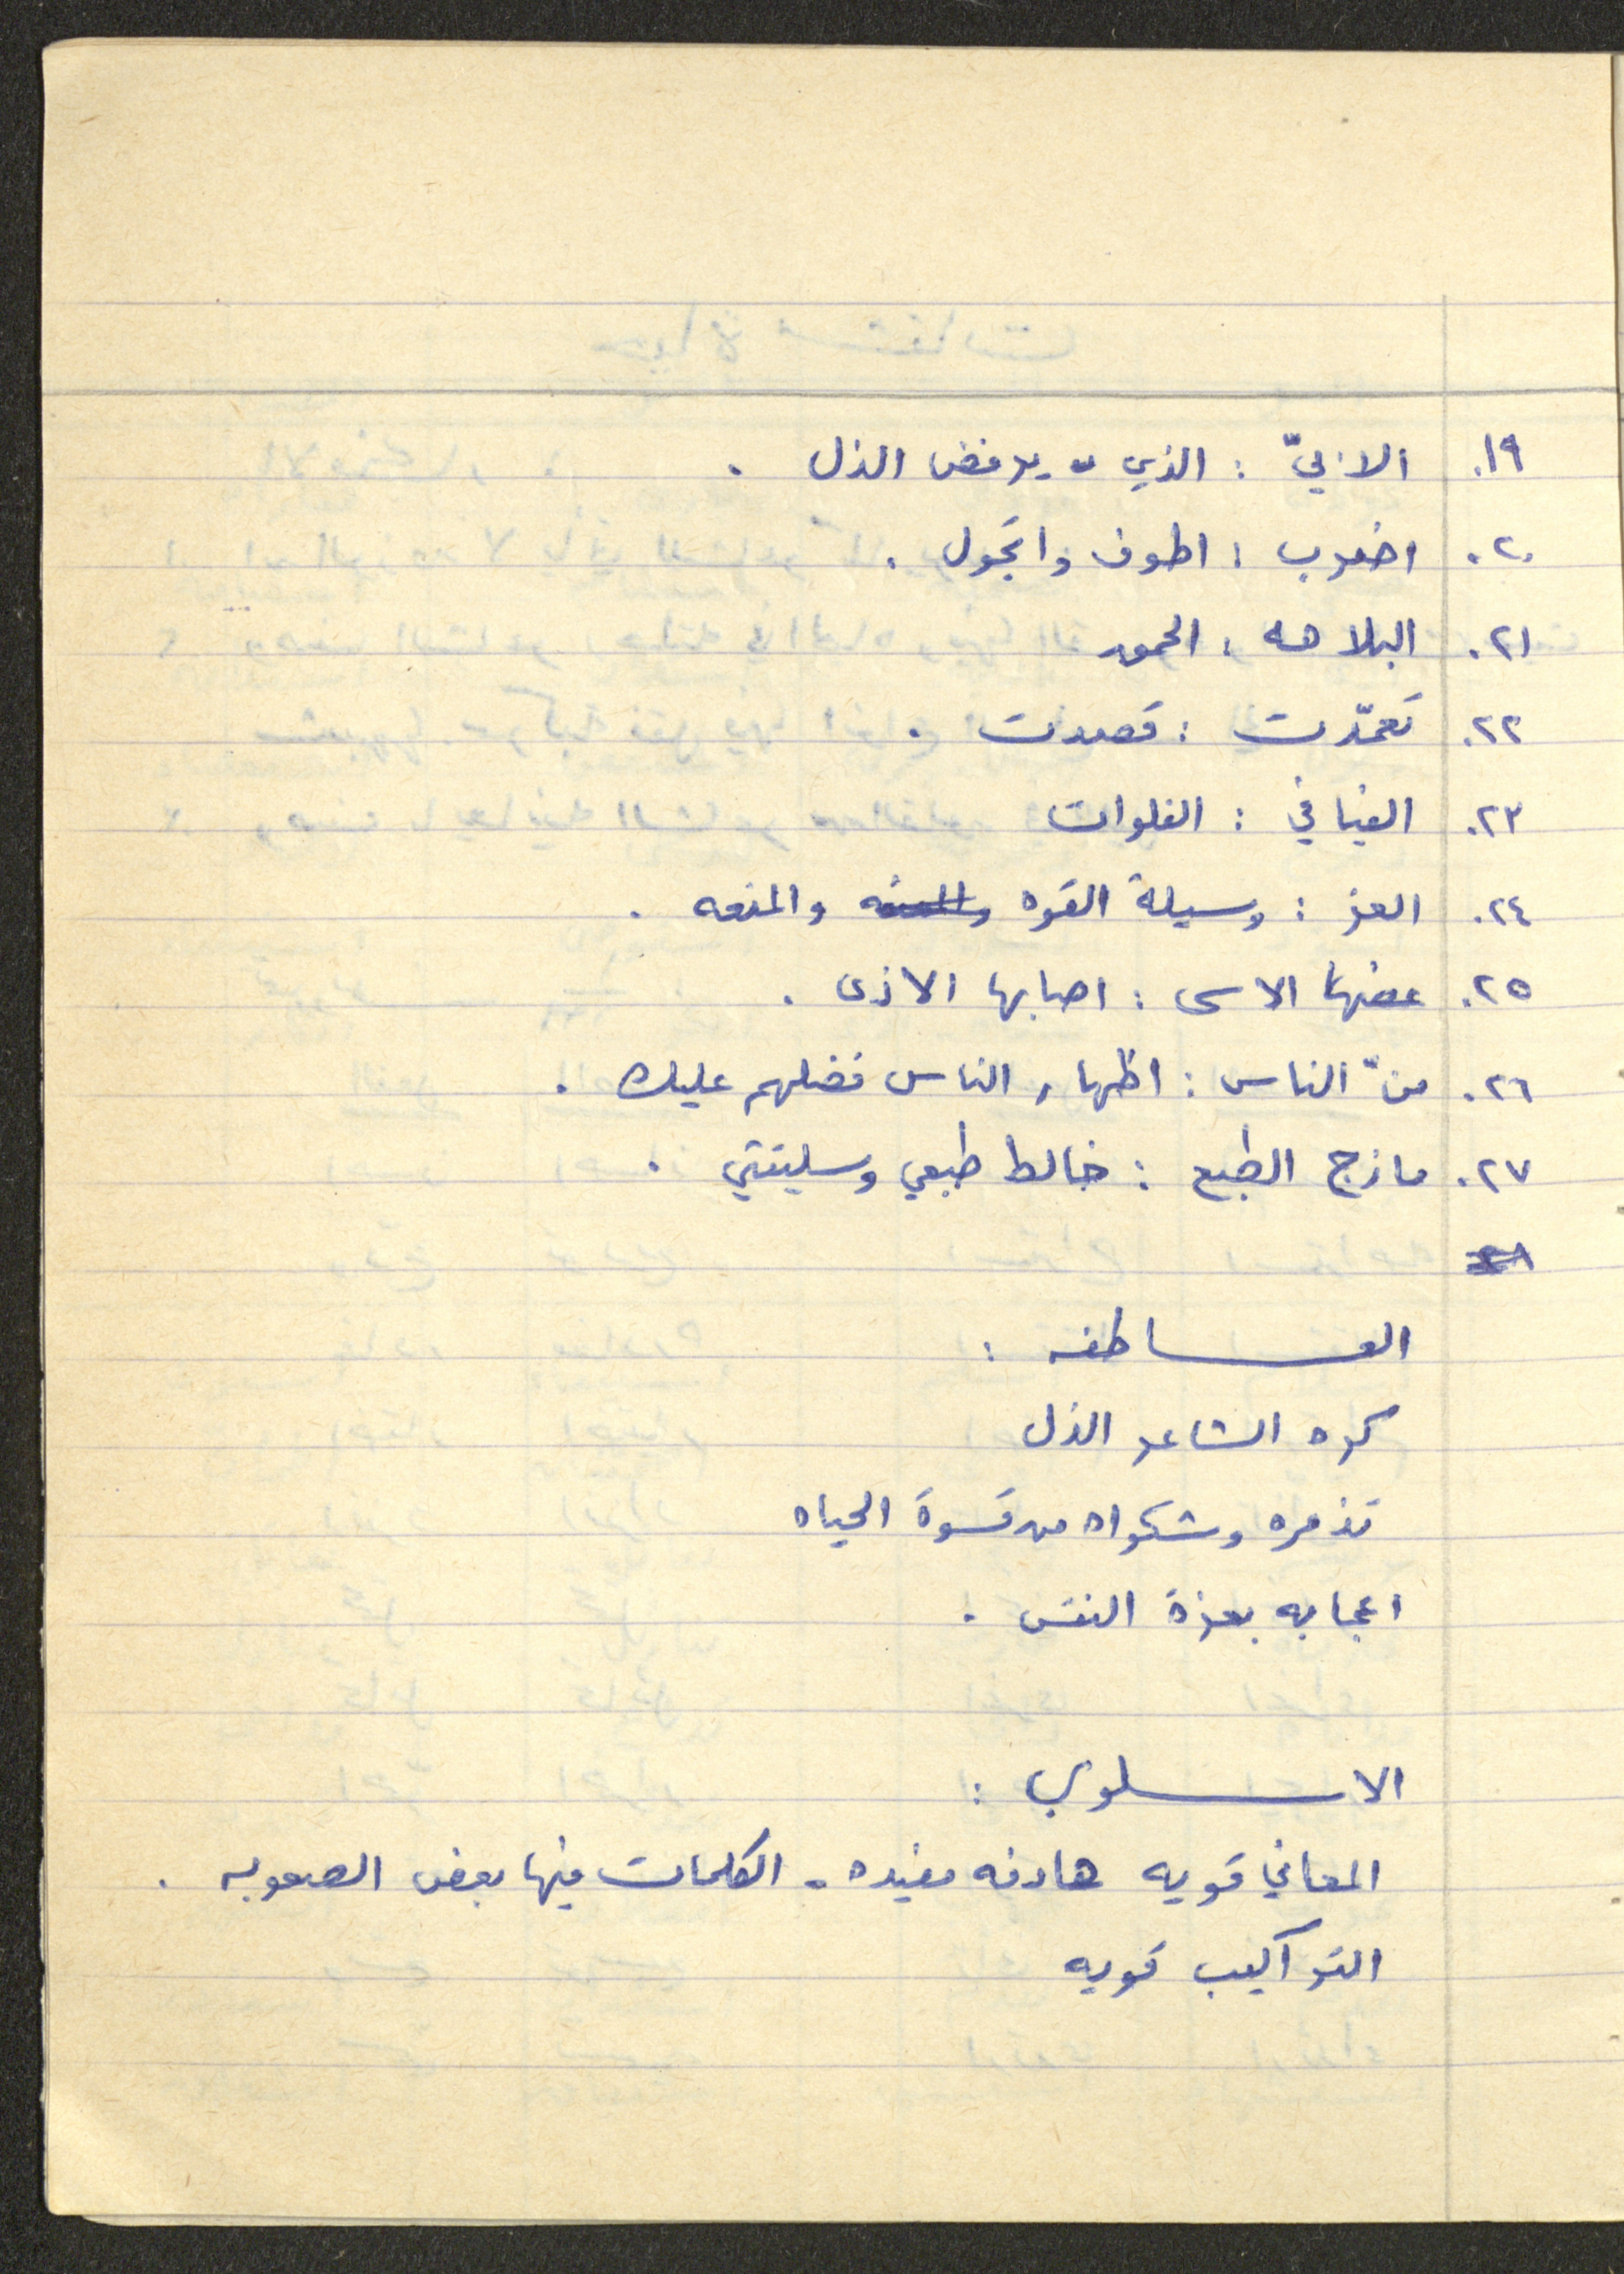 ١٩. الابيّ : الذي يرفض الذل .
٢٠. اضرب : اطوف واتجول .
٢١. البلاهه : الحمق
٢٢. تعمّدت : قصدت .
٢٣. الفيافي : الفلوات
٢٤. العز : وسيلة القوه والمنعه .
٢٥. عضها الاسى : اصابها الاذى .
٢٦. منّ الناس : اظهار الناس فضلهم عليك .
٢٧. مازج الطبع : خالط طبعي وسليقتي .
العاطفه :
كره الشاعر الذل
تذمره وشكواه من قسوة الحياه
اعجابه بعزة النفس .
الاسلوب :
المعاني قويه هادفه مفيده - الكلمات فيها بعض الصعوبه .
التراكيب قويه